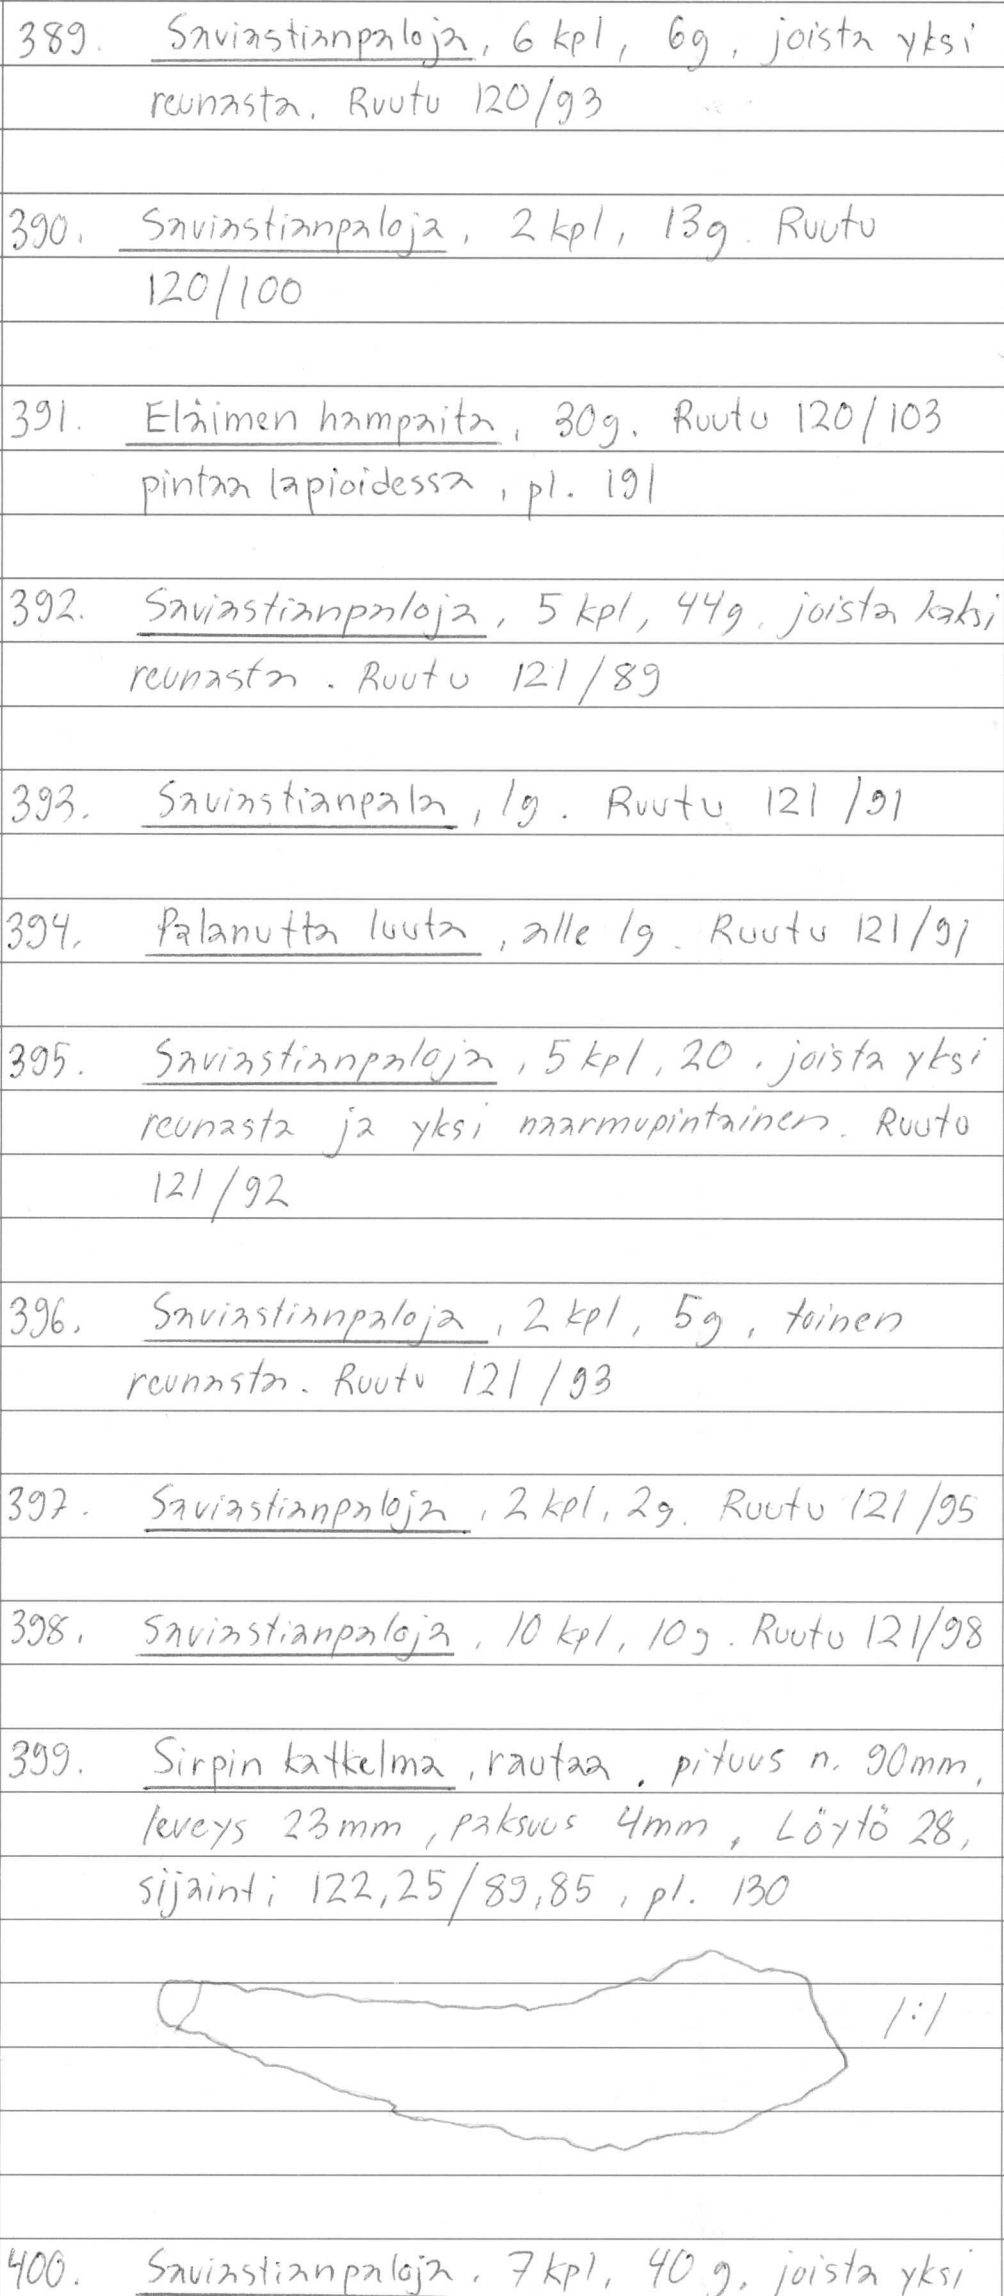 389. Saviastianpaloja, 6 kpl, 6g, joista yksi
reunasta. Ruutu 120/93
390. Saviastianpaloja, 2 kpl, 13g. Ruutu
120/100
391. Eläimen hampaita, 30g. Ruutu 120/103
pintaa lapioidessa, pl. 191
392. Saviastianpaloja, 5 kpl, 44g, joista kaksi
reunasta. Ruutu 121/89
393. Saviastianpala, 1g. Ruutu 121/91
394. Palanutta luuta, alle 1g. Ruutu 121/91
395. Saviastianpaloja, 5 kpl, 20, joista yksi
reunasta ja yksi naarmupintainen. Ruutu
121/92
396. Saviastianpaloja, 2 kpl, 5g, toinen
reunasta. Ruutu 121/93
397. Saviastianpaloja, 2 kpl, 2g. Ruutu 121/95
398. Saviastianpaloja, 10 kpl, 10g. Ruutu 121/98
399. Sirpin katkelma, rautaa, pituus n. 90mm,
leveys 23mm, paksuus 4mm, Löytö 28,
sijainti; 122,25/89,85, pl. 130
1:1
400. Saviastianpaloja, 7 kpl, 40 g, joista yksi